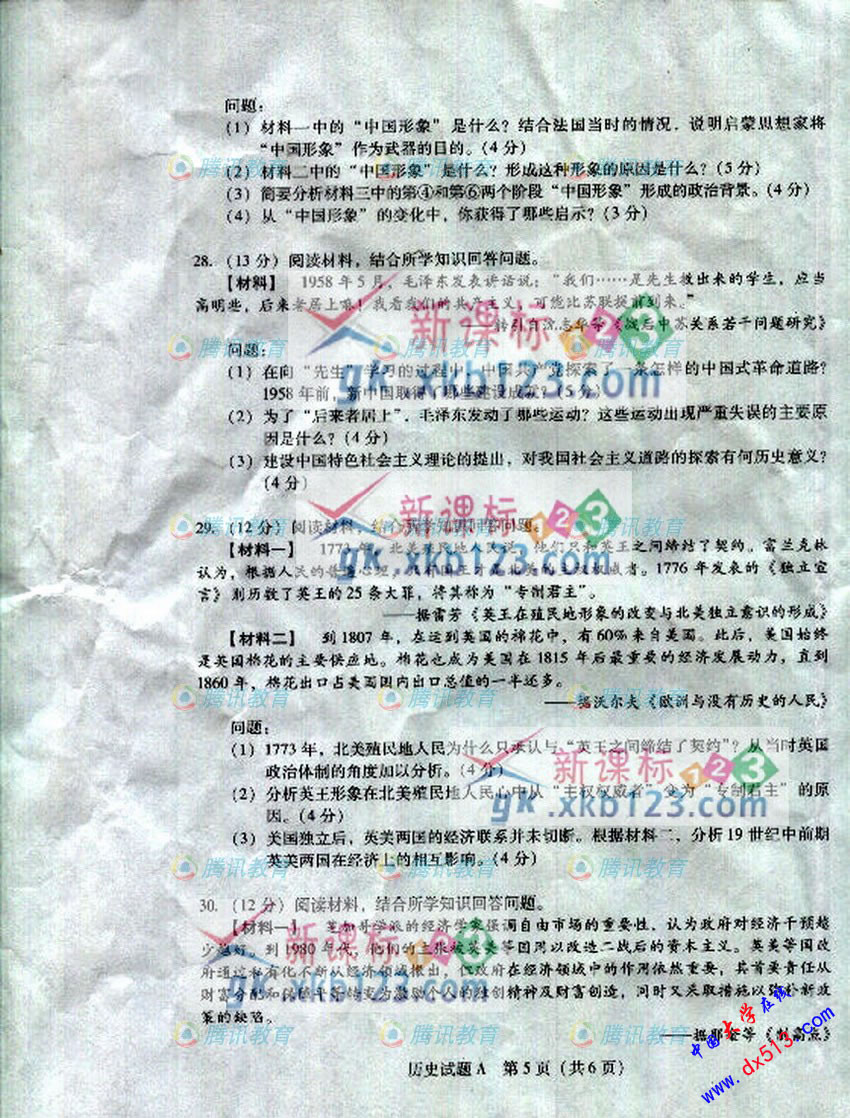 问题：
（1）材料一中的“中国形象”是什么？结合法国当时的情况，说明启蒙思想家将
“中国形象”作为武器的目的。（4分）
（2）材料二中的“中国形象”是什么？形成这种形象的原因是什么？（5分）
（3）简要分析材料三中的第④和第⑥两个阶段“中国形象”形成的政治背景。（4分）
（4）从“中国形象”的变化中，你获得了哪些启示？（3分）
28.（13分）阅读材料，结合所学知识回答问题。
【材料】 1958年5月，毛泽东发表讲话说：“我们……是先生教出来的学生，应当
高明些，后来者居上嘛！我看我们的共产主义，可能比苏联提前到来。”
——转引自沈志华等《战后中苏关系若干问题研究》
问题：
（1）在向“先生”学习的过程中，中国共产党探索了一条怎样的中国式革命道路？
1958年前，新中国取得了哪些建设成就？（5分）
（2）为了“后来者居上”，毛泽东发动了哪些运动？这些运动出现严重失误的主要原
因是什么？（4分）
（3）建设中国特色社会主义理论的提出，对我国社会主义道路的探索有何历史意义？
（4分）
29.（12分）阅读材料，结合所学知识回答问题。
【材料一】 1773年，北美殖民地人民说，他们只和英王之间缔结了契约。富兰克林
认为，根据人民的普遍心理，只有国王才是北美的主权权威者。1776年发表的《独立宣
言》则历数了英王的25条大罪，将其称为“专制君主”。
——据雷芳《英王在殖民地形象的改变与北美独立意识的形成》
【材料二】 到1807年，在运到英国的棉花中，有60%来自美国。此后，美国始终
是英国棉花的主要供应地。棉花也成为美国在1815年后最重要的经济发展动力，直到
1860年，棉花出口占美国国内出口总值的一半还多。
——据沃尔夫《欧洲与没有历史的人民》
问题：
（1）1773年，北美殖民地人民为什么只承认与“英王之间缔结了契约”？从当时英国
政治体制的角度加以分析。（4分）
（2）分析英王形象在北美殖民地人民心中从“主权权威者”变为“专制君主”的原
因。（4分）
（3）美国独立后，英美两国的经济联系并未切断。根据材料二，分析19世纪中前期
英美两国在经济上的相互影响。（4分）
30.（12分）阅读材料，结合所学知识回答问题。
【材料一】 芝加哥学派的经济学家强调自由市场的重要性，认为政府对经济干预越
少越好。到1980年代，他们的主张被英美等国用以改造二战后的资本主义。英美等国政
府通过私有化不断从经济领域撤出，但政府在经济领域中的作用依然重要，其首要责任从
财富分配和 人的独创精神及财富创造，同时又采取措施以弥补新政
策的缺陷。
——据耶金等《制高点》
历史试题A 第5页（共6页）
腾讯教育
新课标123
gk.xkb123.com
中国大学在线
www.dx513.com